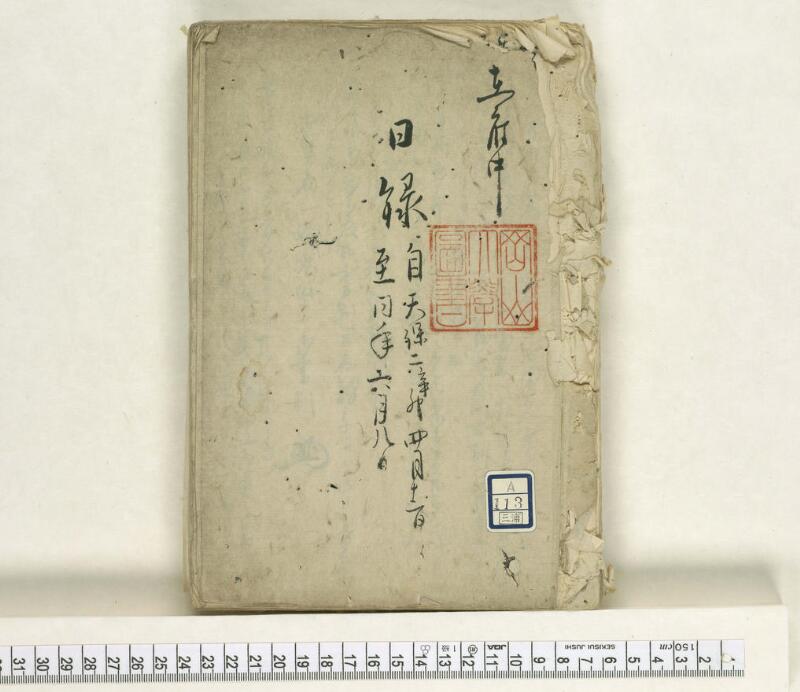 在府中
日録
自天保二辛卯四月十一日
至同年六月八日
岡山
大學
圖書
A
113
三浦
31 30 29 28 27 26 25 24 23 22 21 20 19 18 17 16 15 14 13 12 11 10 9 8 7 6 5 4 3 2
1級 JQA SEKISUI JUSHI 150cm